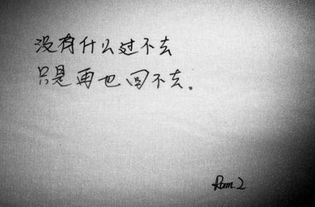 没有什么过不去
只是再也回不去。